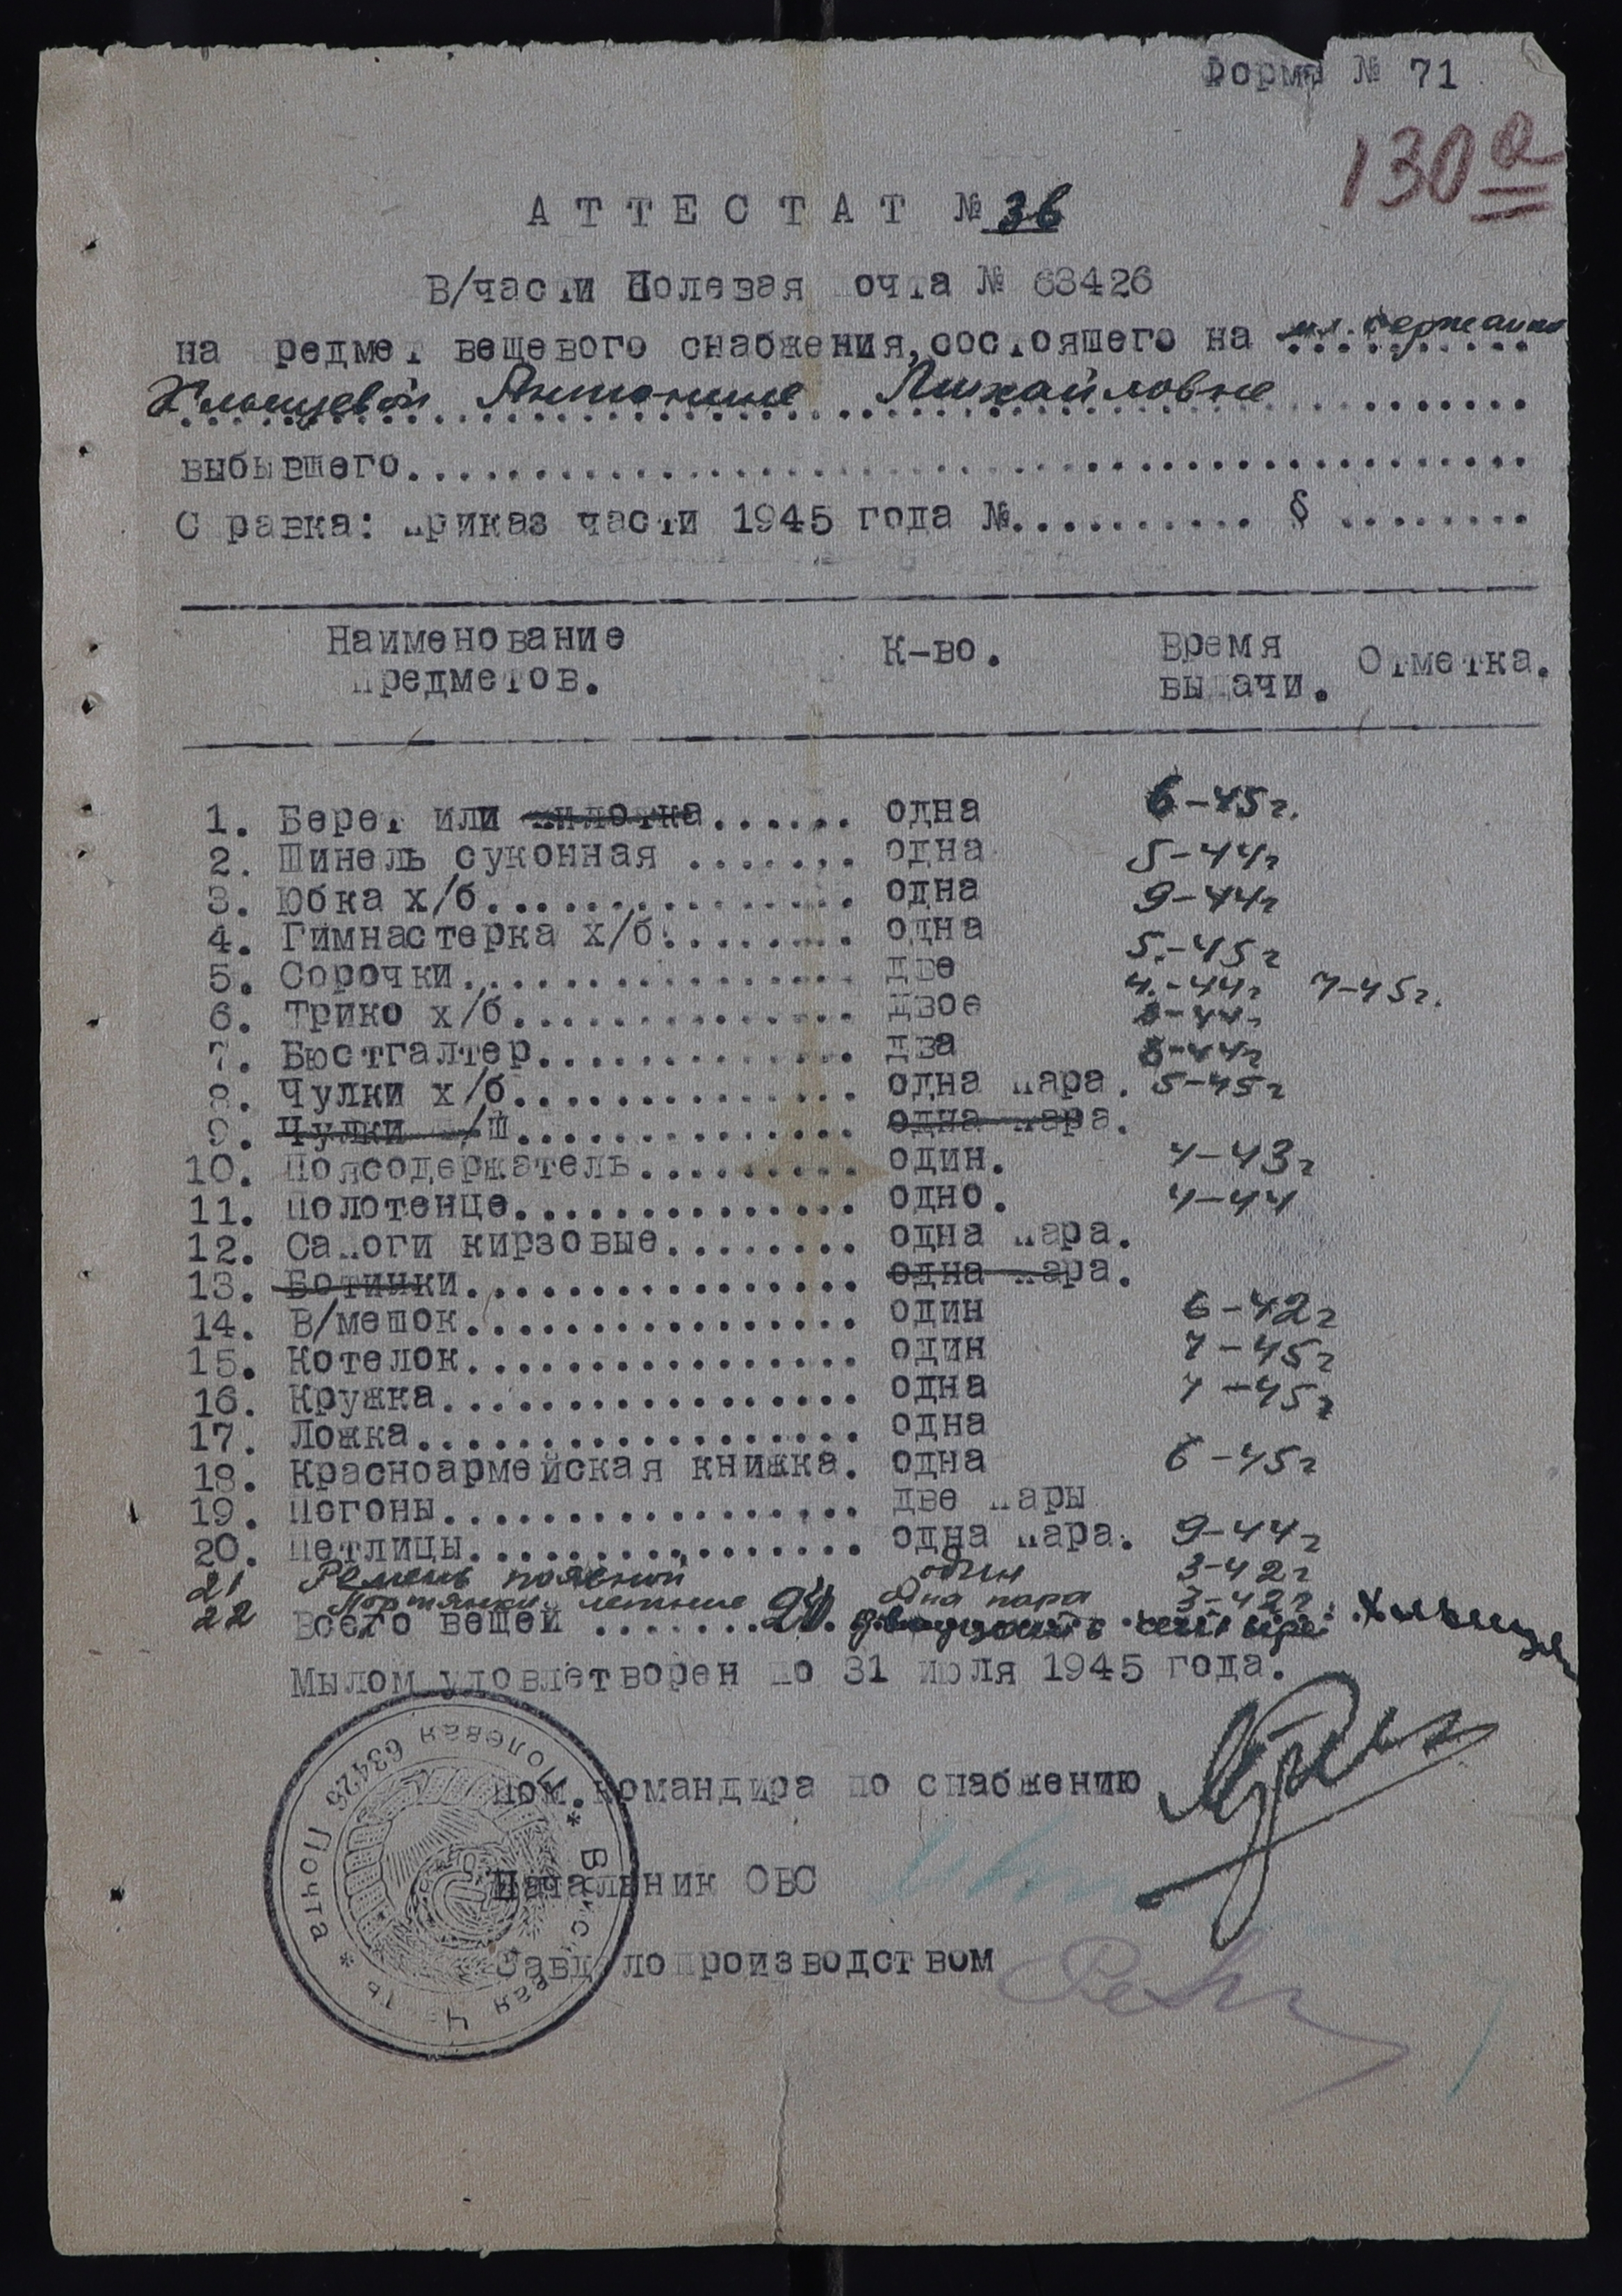 Форма № 71
130 а
АТТЕСТАТ № 36
В/части Полевая почта № 63426
на предмет вещевого снабжения, состоящего на мл. сержанте
Антонине Михайловне
выбывшего
Справка: приказ части 1945 года №.......... § ........
Наименование предметов. К-во. Время выдачи. Отметка.
1. Берет или пилотка...... одна 6-45г.
2. Шинель суконная ....... одна 5-44г
3. Юбка х/б............... одна 9-44г
4. Гимнастерка х/б........ одна 5-45г
5. Сорочки................ две 4-44г 7-45г.
6. Трико х/б.............. двое
7. Бюстгалтер............. два
8. Чулки х/б.............. одна пара. 5-45г
9. Чулки /Ш.............. одна пара.
10. Поясодержатель......... один. 4-43г
11. Полотенце.............. одно. 4-44
12. Сапоги кирзовые........ одна пара.
13. Ботинки................ одна пара.
14. В/мешок................ один 6-42г
15. Котелок................ один 7-45г
16. Кружка................. одна 7-45г
17. Ложка.................. одна
18. Красноармейская книжка. одна 6-45г
19. Погоны................. две пары
20. Петлицы................ одна пара. 9-44г
21 Ремень поясной один 3-42г
22 Портянки летние одна пара 3-42г.
Всего вещей ....... 24. двадцать четыре
Мылом удовлетворен по 31 июля 1945 года.
Пом. командира по снабжению
Начальник ОВС
Завделопроизводством
* Воинская Часть * Полевая Почта 63426